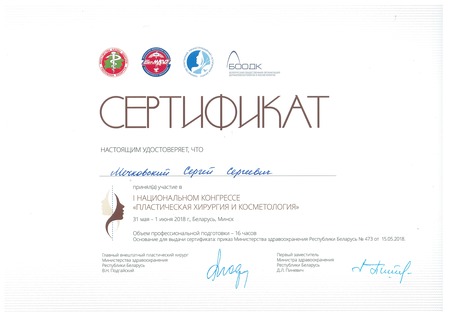 БелМАПО
БООДК
СЕРТИФИКАТ
НАСТОЯЩИМ УДОСТОВЕРЯЕТ, ЧТО
Мечковский Сергей Сергеевич
принял(а) участие в
I НАЦИОНАЛЬНОМ КОНГРЕССЕ
«ПЛАСТИЧЕСКАЯ ХИРУРГИЯ И КОСМЕТОЛОГИЯ»
31 мая – 1 июня 2018 г., Беларусь, Минск
Объем профессиональной подготовки – 16 часов
Основание для выдачи сертификата: приказ Министерства здравоохранения Республики Беларусь № 473 от 15.05.2018
Главный внештатный пластический хирург
Министерства здравоохранения
Республики Беларусь
В.Н. Подгайский
Первый заместитель
Министра здравоохранения
Республики Беларусь
Д.Л. Пиневич